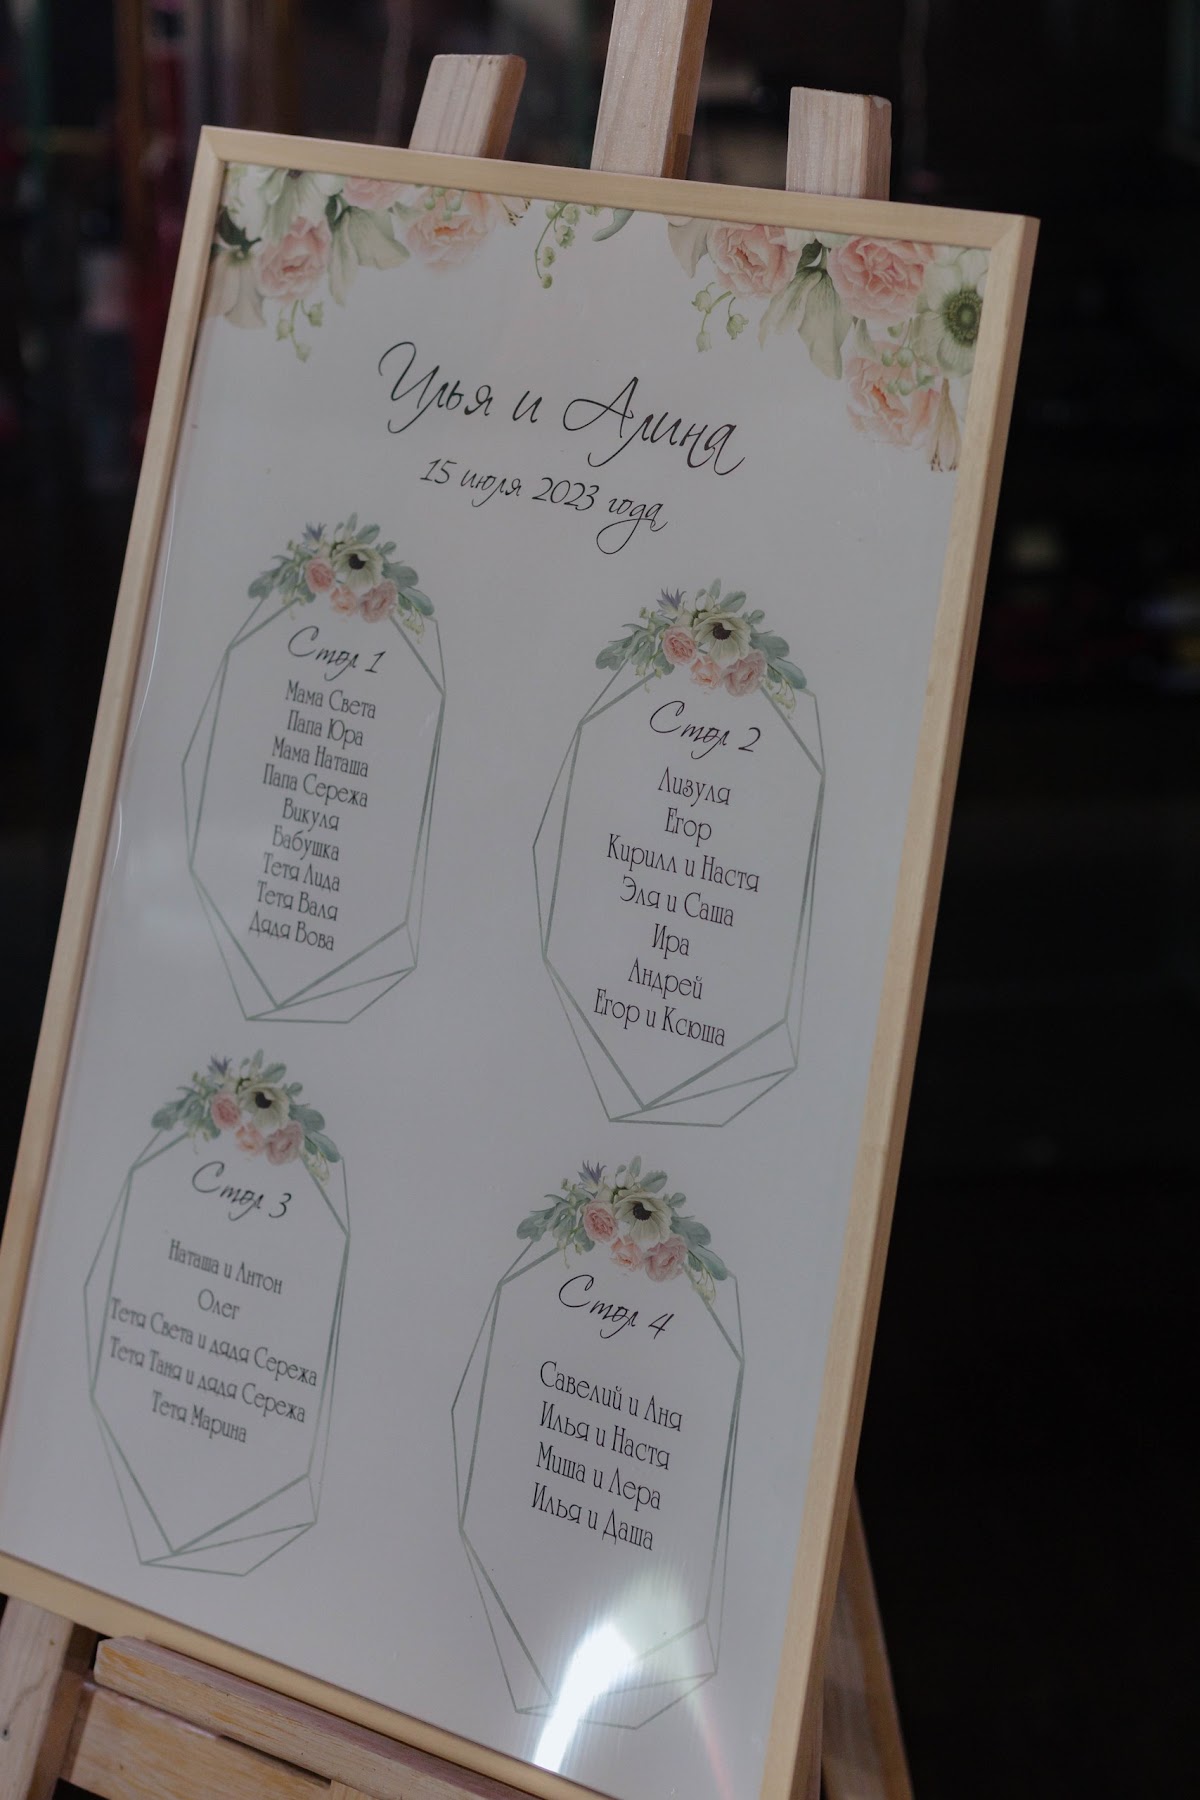 Илья и Алина
15 июля 2023 года
Стол 1
Мама Света
Папа Юра
Мама Наташа
Папа Сережа
Викуля
Бабушка
Тетя Лида
Тетя Валя
Дядя Вова
Стол 2
Лизуля
Егор
Кирилл и Настя
Эля и Саша
Ира
Андрей
Егор и Ксюша
Стол 3
Наташа и Антон
Олег
Тетя Света и дядя Сережа
Тетя Таня и дядя Сережа
Тетя Марина
Стол 4
Савелий и Аня
Илья и Настя
Миша и Лера
Илья и Даша